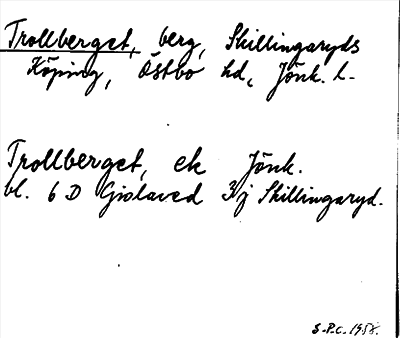 Trollberget, berg, Skillingaryds
Köping, Östbo hd, Jönk. l.
Trollberget, ek Jönk.
bl. 6 D Gislaved 3j Skillingaryd.
S.P.C. 1958.